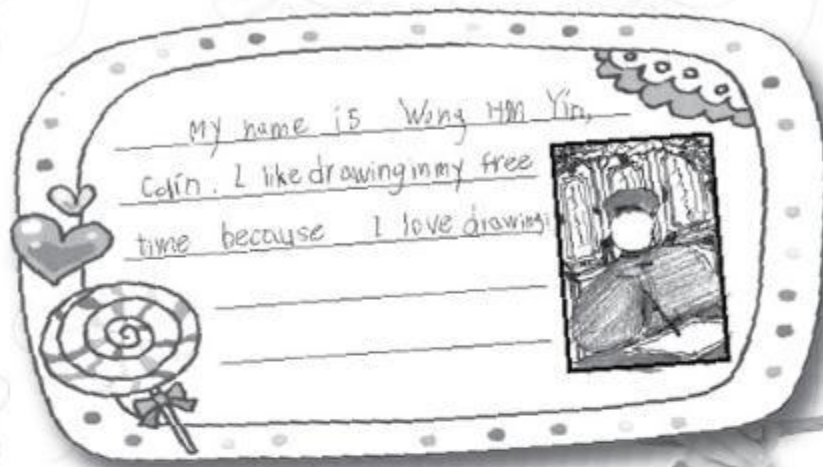 My name is Wong Yin,
Colin. I like drawing in my free
time because I love drawing